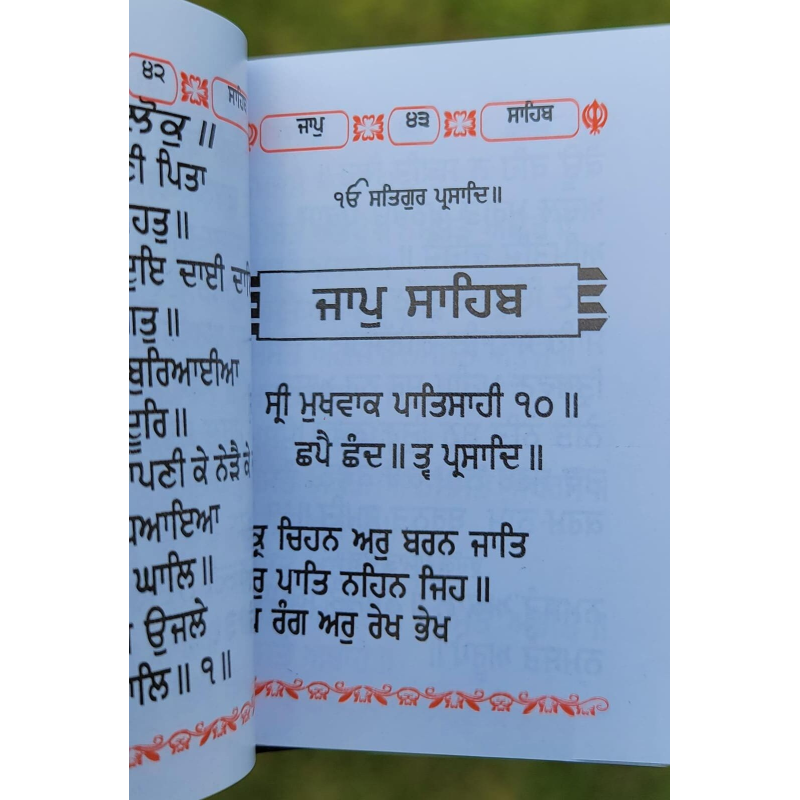 ੪੨
ਪਿਤਾ
ਦਾਈ
ਬੁਰਿਆਈਆ
ਕੇ ਨੇੜੈ ਕੇ
ਘਾਲਿ॥
ਉਜਲੇ
੧॥
ਜਾਪੁ ੪੩ ਸਾਹਿਬ
ੴ ਸਤਿਗੁਰ ਪ੍ਰਸਾਦਿ॥
ਜਾਪੁ ਸਾਹਿਬ
ਸ੍ਰੀ ਮੁਖਵਾਕ ਪਾਤਿਸਾਹੀ ੧੦॥
ਛਪੈ ਛੰਦ॥ ਤ੍ਵ ਪ੍ਰਸਾਦਿ॥
ਚਿਹਨ ਅਰੁ ਬਰਨ ਜਾਤਿ
ਪਾਤਿ ਨਹਿਨ ਜਿਹ॥
ਰੰਗ ਅਰੁ ਰੇਖ ਭੇਖ